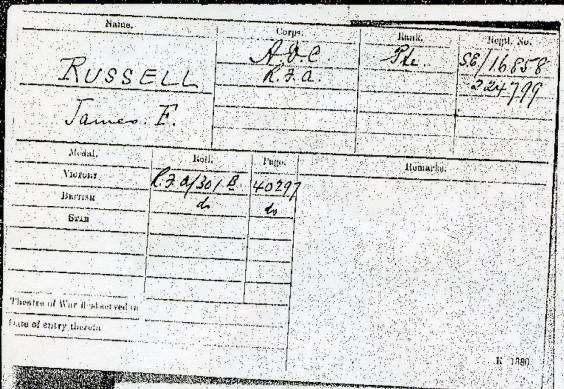 Name. Corps. Rank. Regtl. No.
RUSSELL A.V.C. Pte. SE/16858
R.F.A. 224799
James. F.
Medal. Roll. Page. Remarks.
VICTORY R.F.A/301.B. 40297
BRITISH do do
STAR
Theatre of War first served in
Date of entry therein
K 1380